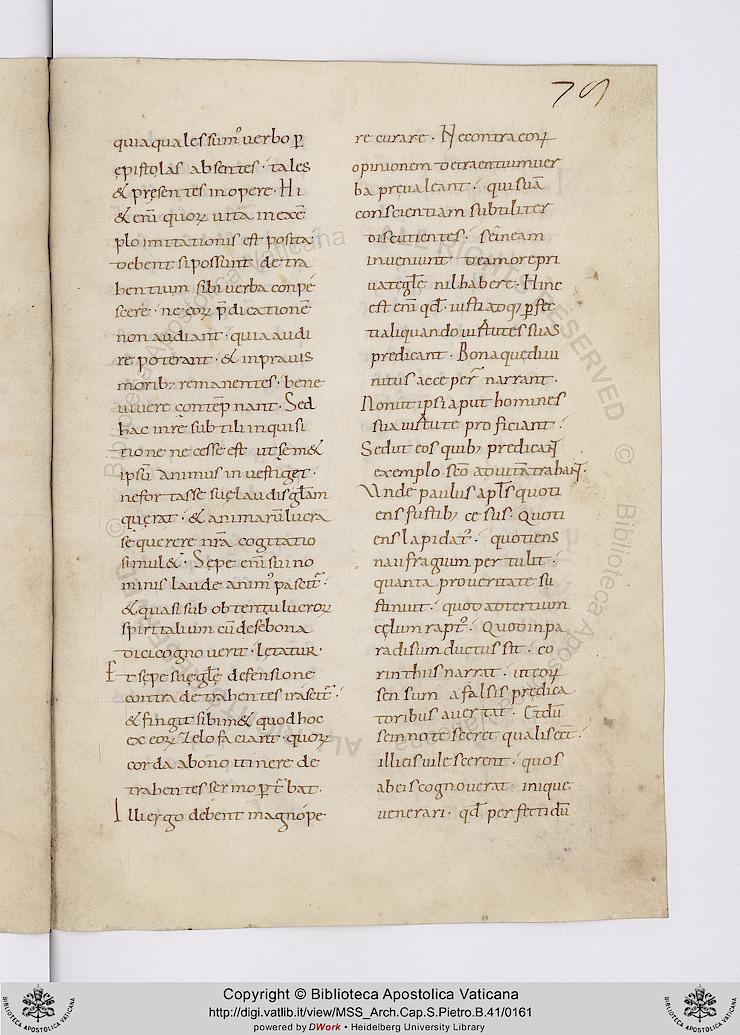 79
quia quales sum' verbo p
epistolas absentes · tales
& presentes in opere · Hi
& eni quoꝝ uita in exē
plo imitationis est posita
debent si possunt de tra
hentium sibi verba conpe
scere · ne eoꝝ p̄dicationē
non audiant · quia audi
re poterant · & in prauis
moribꝫ remanentes · bene
uiuere contēpnant · Sed
hac in re subtili inquisi
tione necesse est ut sem&
ipsū animus inuestiget ·
ne fortasse suę laudis glām
quęrat · & animarū lucra
se querere nr̄a cogitatio
simul& · Sepe eni sui no
minis laude anim' pascit᷑ ·
& quasi sub obtentu lucroꝝ
spiritalium cū de se bona
dici cognouerit · lętatur ·
Et sepe suę glę defensione
contra detrahentes irascit᷑ ·
& fingit sibim& quod hoc
ex eoꝝ zelo faciant · quoꝝ
corda a bono itinere de
trahentes sermo ꝑt᷑bat ·
Illi ergo debent magnope
re curare · Ne contra eoꝝ
opinionem detraentium uer
ba pręualeant · qui suā
conscientiam subtiliter
discutientes · se in eam
inueniunt de amore pri
uatę glę nil habere · Hinc
est eni qd' iusti atq; ꝑfec
ti aliquando uirtutes suas
predicant · Bona quę diui
nitus acceper̄ narrant ·
Non ut ipsi aput homines
sua uirtute proficiant ·
Sed ut eos quibꝫ predicant
exemplo suo ad uitā trahant ·
Unde paulus apl's quoti
ens fustibꝫ cesus · Quoti
ens lapidat' · quotiens
naufragium pertulit ·
quanta pro ueritate su
stinuit · quod ad tertium
cęlum rapt' · Quod in pa
radisum ductus sit · co
rinthiis narrat · ut eoꝝ
sensum a falsis predica
toribus auertat · Et dū
se innotesceret qualis eēt ·
illi eis uilescerent · quos
ab eis cognouerat · inique
uenerari · qd' perfecti dū
Copyright © Biblioteca Apostolica Vaticana
http://digi.vatlib.it/view/MSS_Arch.Cap.S.Pietro.B.41/0161
powered by DWork • Heidelberg University Library
BIBLIOTECA APOSTOLICA VATICANA
BIBLIOTECA APOSTOLICA VATICANA
© Biblioteca Apostolica Vaticana ALL RIGHTS RESERVED © Biblioteca Apostolica Vaticana ALL RIGHTS RESERVED